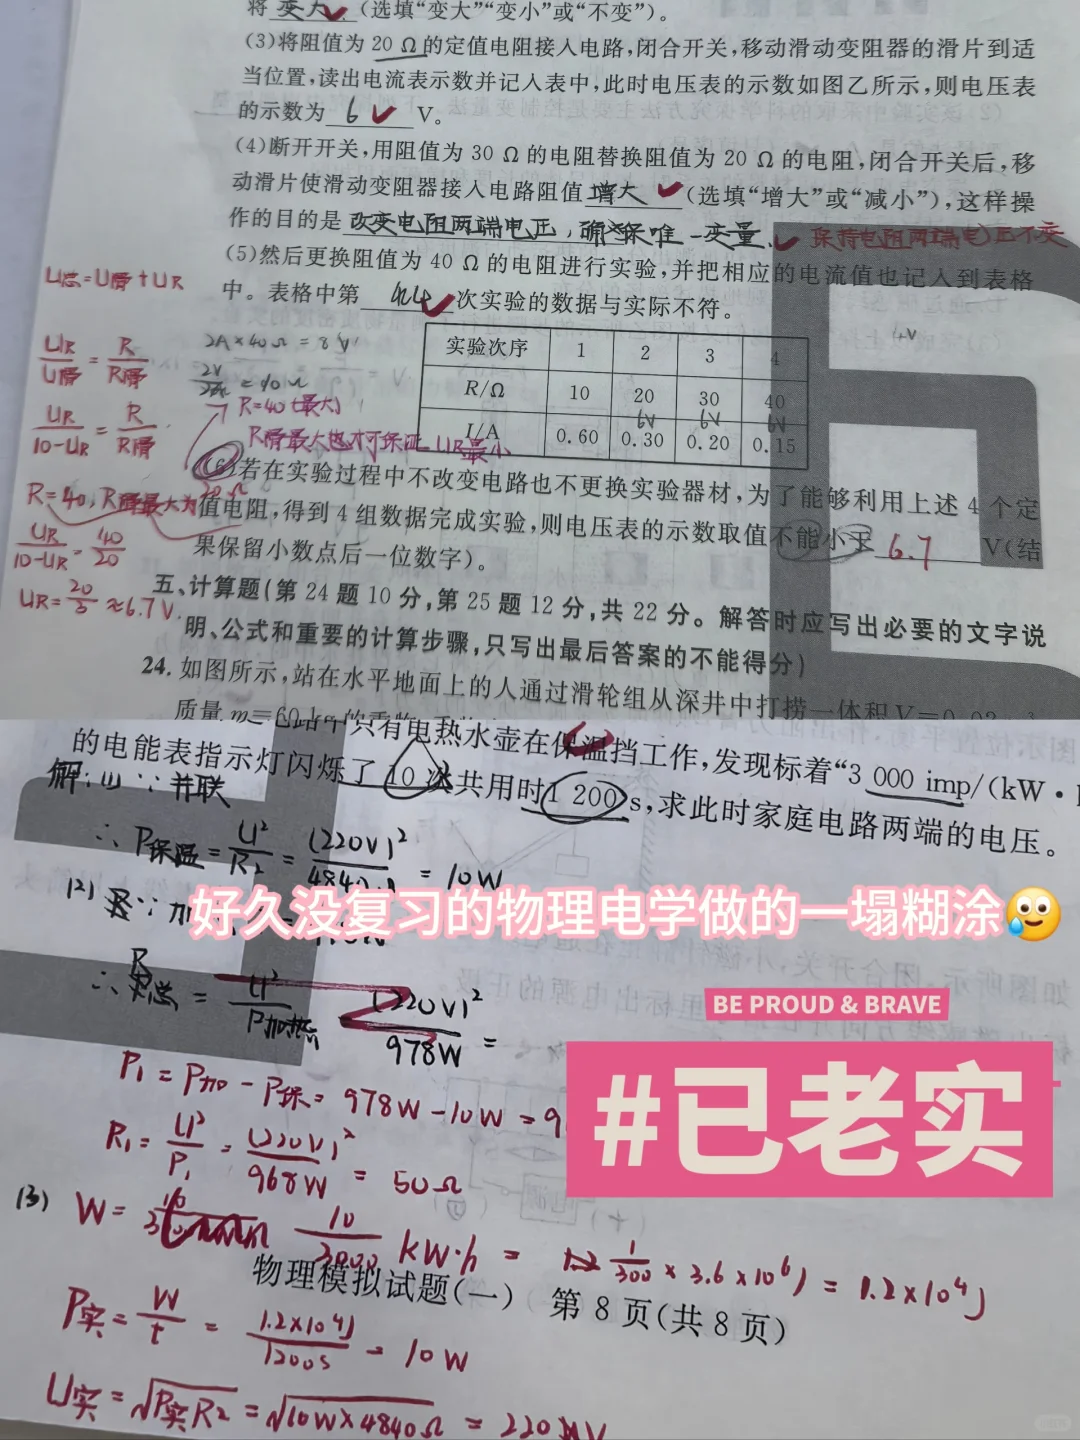 将 变大 (选填“变大”“变小”或“不变”)。
(3)将阻值为 20 Ω 的定值电阻接入电路,闭合开关,移动滑动变阻器的滑片到适
当位置,读出电流表示数并记入表中,此时电压表的示数如图乙所示,则电压表
的示数为 6 V。
(4)断开开关,用阻值为 30 Ω 的电阻替换阻值为 20 Ω 的电阻,闭合开关后,移
动滑片使滑动变阻器接入电路阻值 增大 (选填“增大”或“减小”),这样操
作的目的是 改变电阻两端电压,确保唯一变量、 保持电阻两端电压不变
(5)然后更换阻值为 40 Ω 的电阻进行实验,并把相应的电流值也记入到表格
中。表格中第 4 次实验的数据与实际不符。
U总=U滑+UR
UR/U滑=R/R滑
UR/10-UR=R/R滑
R=40,R滑最大为20Ω
UR/10-UR=40/20
UR=20/3≈6.7V
2A×40Ω=8V
R=40(最大)
R滑最大也才可保证UR最小
4V
实验次序 1 2 3 4
R/Ω 10 20 30 40
6V 6V 6V
I/A 0.60 0.30 0.20 0.15
(6)若在实验过程中不改变电路也不更换实验器材,为了能够利用上述 4 个定
值电阻,得到 4 组数据完成实验,则电压表的示数取值不能小于 6.7 V(结
果保留小数点后一位数字)。
五、计算题(第 24 题 10 分,第 25 题 12 分,共 22 分。解答时应写出必要的文字说
明、公式和重要的计算步骤,只写出最后答案的不能得分)
24. 如图所示,站在水平地面上的人通过滑轮组从深井中打捞一体积
只有电热水壶在保温挡工作,发现标着“3 000 imp/(kW·
的电能表指示灯闪烁了 10 次共用时 1 200 s,求此时家庭电路两端的电压。
解:(1)∵并联
∴P保温=U²/R2=(220V)²/4840Ω=10W
(2)
好久没复习的物理电学做的一塌糊涂😥
∴R总=U²/P加热 (220V)²/978W=
BE PROUD & BRAVE
#已老实
P1=P加-P保=978W-10W=9
R1=U²/P1=(220V)²/968W=50Ω
(3) W=10/3000 kW·h=1/300×3.6×10⁶J=1.2×10⁴J
物理模拟试题(一) 第 8 页(共 8 页)
P实=W/t=1.2×10⁴J/1200s=10W
U实=√P实R2=√10W×4840Ω=220V